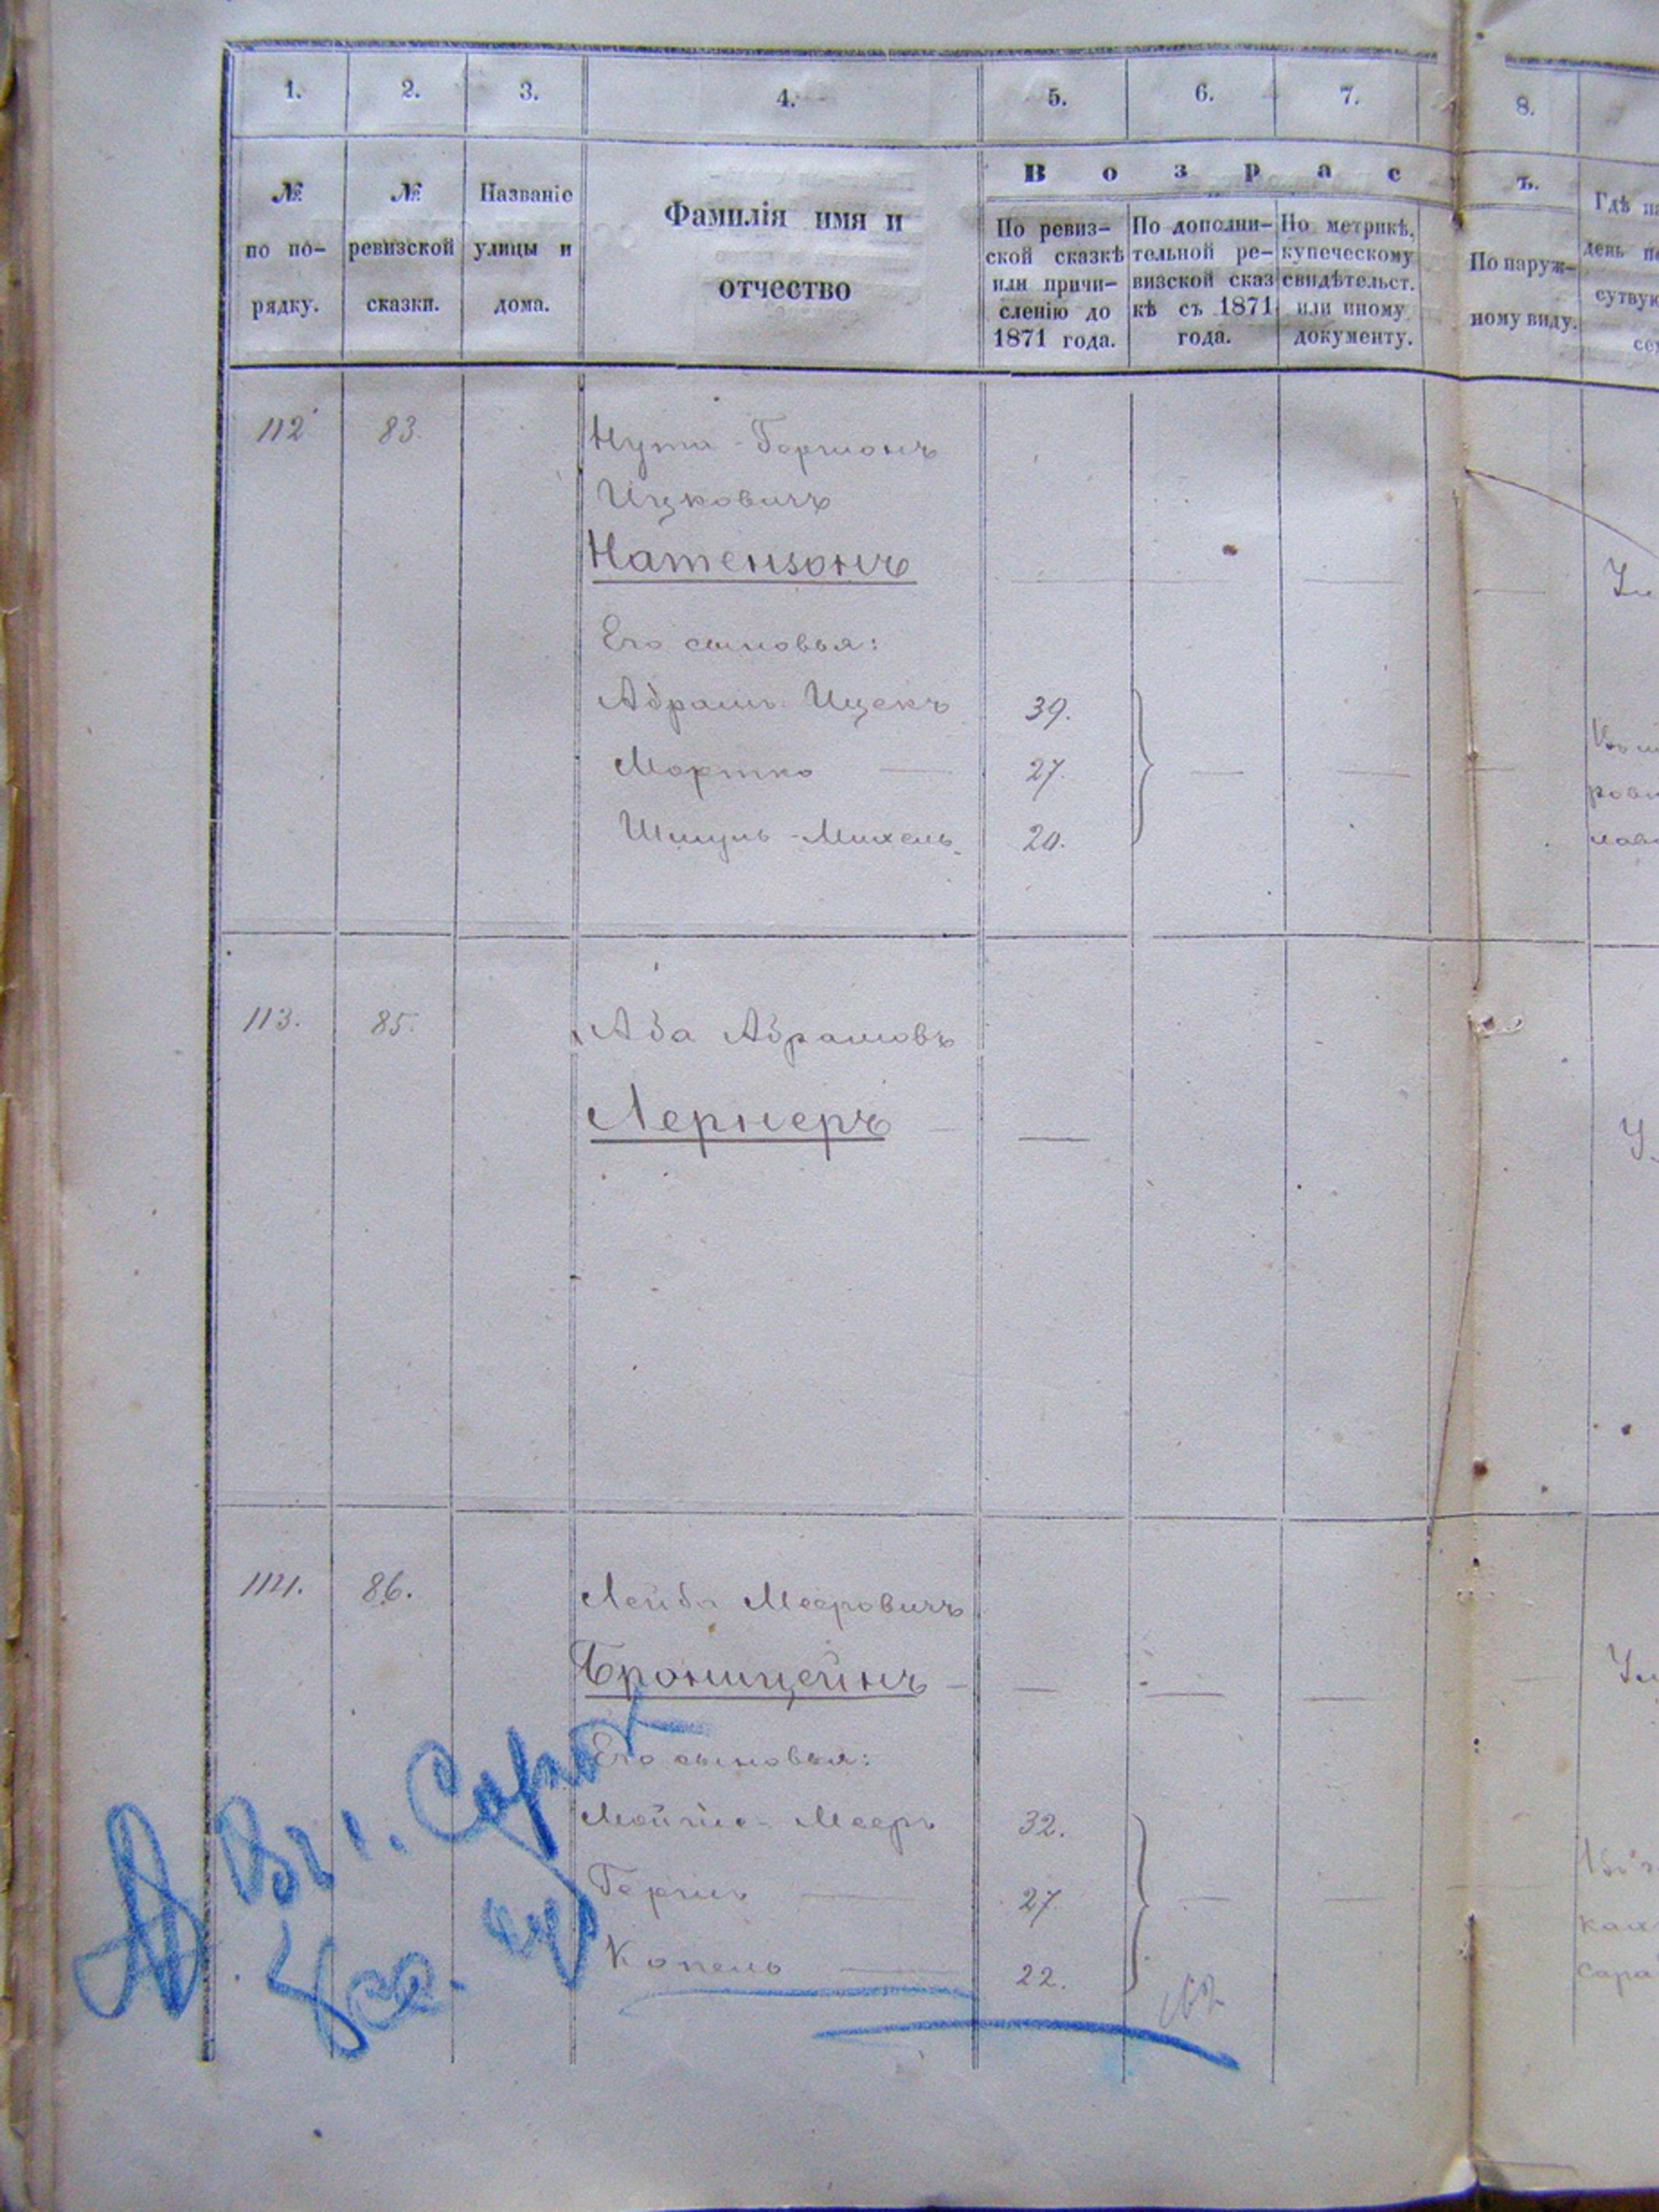 1. 2. 3. 4. 5. 6. 7. 8.
№ по по-рядку.
№ ревизской сказки.
Названіе улицы и дома.
Фамилія имя и отчество
В о з р а с т ъ.
По ревиз-
ской сказкѣ
или причи-
сленію до
1871 года.
По дополни-
тельной ре-
визской сказ
кѣ съ 1871
года.
По метрикѣ,
купеческому
свидѣтельст.
или иному
документу.
По наруж-
ному виду.
Гдѣ
день
112 83.
Нута-Гершонъ
Ицковичъ
Натензонъ
Его сыновья:
Абрамъ-Ицекъ 39.
Мортко 27.
Шмуль-Михель 20.
113. 85.
Аба Абрамовъ
Лернеръ
114. 86.
Лейба Мееровичъ
Бронштейнъ
Его сыновья:
Мееръ 32.
Гершъ 27.
Копель 22.